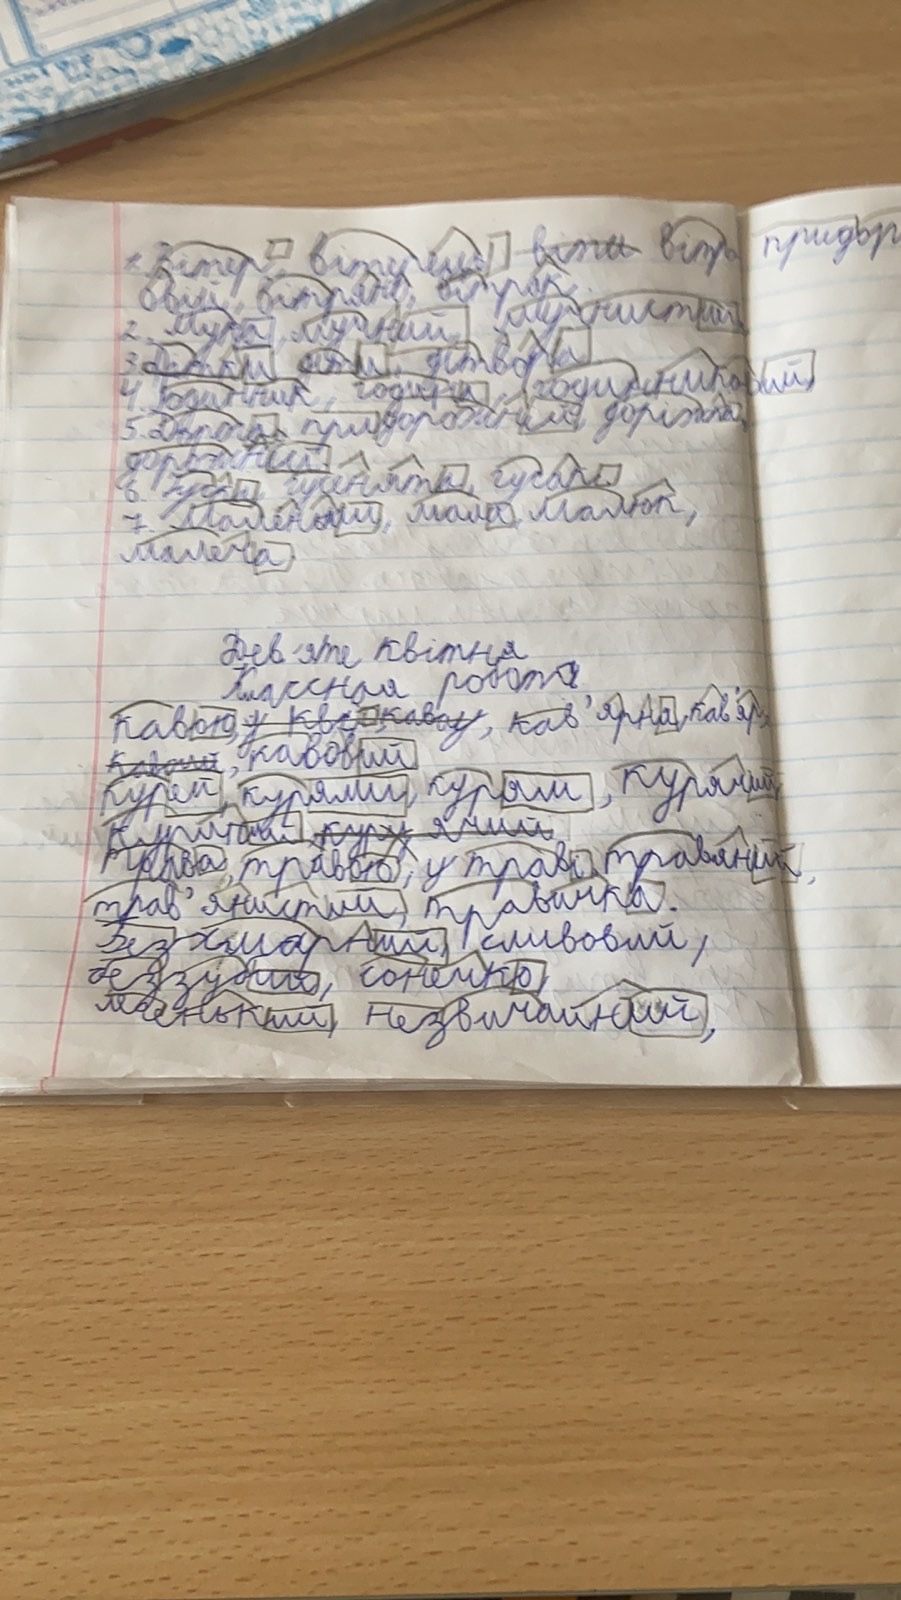 1. Вітер, вітерець, віты вітро придор
овій, вітряно, вітряк.
2. Мука, мучний, мучнистий
3. Дітки, діти, дітвора
4. Годинник, година, годинниковий
5. Дорога, придорожний, доріжка,
дорожний
6. Гуси, гусенята, гусак
7. Маленький, мала, малюк,
малеча
Дев'яте квітня
Классная робота
Кавою, у каву, кав'ярня, кав'яр,
, кавовий
Курей, курями, курям, курячий
Трава, травою, у траві травяний,
трав'янистий, травичка.
Безхмарний, сливовий,
беззубий, сонечко,
незвичайний,